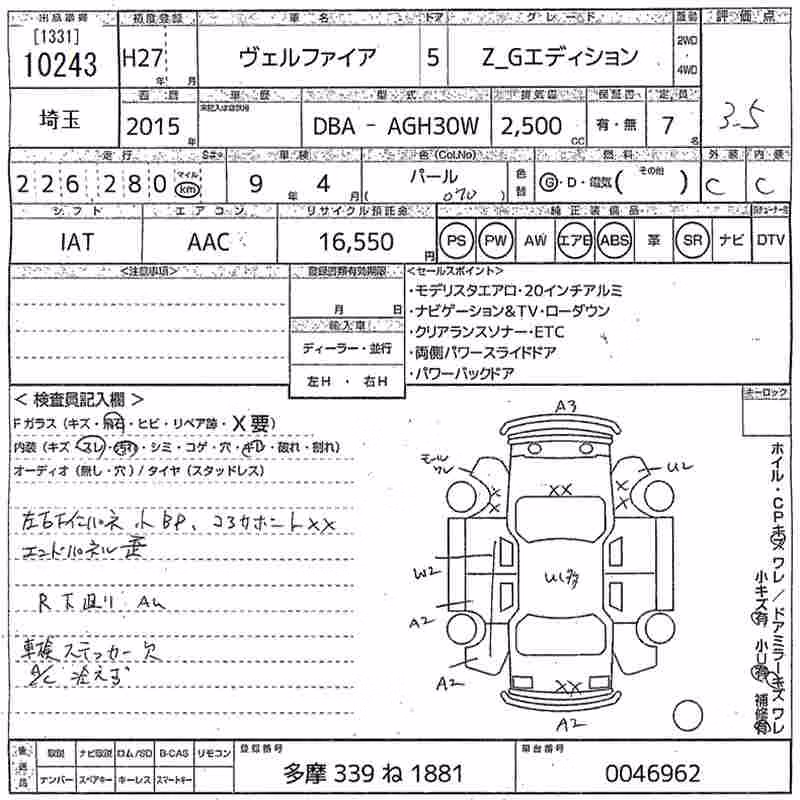 出品車番 初度登録 車名 ドア グレード 駆動 評価点
[1331]
10243 H27 年 月 ヴェルファイア 5 Z_Gエディション 2WD 4WD
西暦 車歴 型式 排気量 保証書 定員
埼玉 2015年 DBA - AGH30W 2,500 CC 有・無 7名 3.5
走行 車検 色(Col.No) 燃料 外装 内装
226,280 マイル km 9年 4月 パール 070 色替 G・D・電気( その他 ) C C
シフト エアコン リサイクル預託金 純正装備品
IAT AAC 16,550円 PS PW AW エアB ABS 革 SR ナビ DTV
<注意事項> 登録書類有効期限 <セールスポイント>
月 日
輸入車
ディーラー・並行
左H ・ 右H
・モデリスタエアロ・20インチアルミ
・ナビゲーション&TV・ローダウン
・クリアランスソナー・ETC
・両側パワースライドドア
・パワーバックドア
< 検査員記入欄 > キーロック
Fガラス (キズ・飛石・ヒビ・リペア跡・X要)
内装 (キズ・スレ・汚れ・シミ・コゲ・穴・キレ・破れ・割れ)
オーディオ (無し・穴) / タイヤ (スタッドレス)
コアサポート XX
エンドパネル 歪
R下廻り
車検ステッカー欠
A/C 冷えず
A3
モール
ワレ
U2
XX
X
X
X
X
W2
A2
A2
XX
A2
ホイル・CPキズワレ/ドアミラーキズワレ
小キズ有 小U有 補修有
後送品 取説 ナビ取説 ロム/SD B-CAS リモコン 登録番号 車台番号
ナンバー スペアキー キーレス スマートキー 多摩 339 ね 1881 0046962